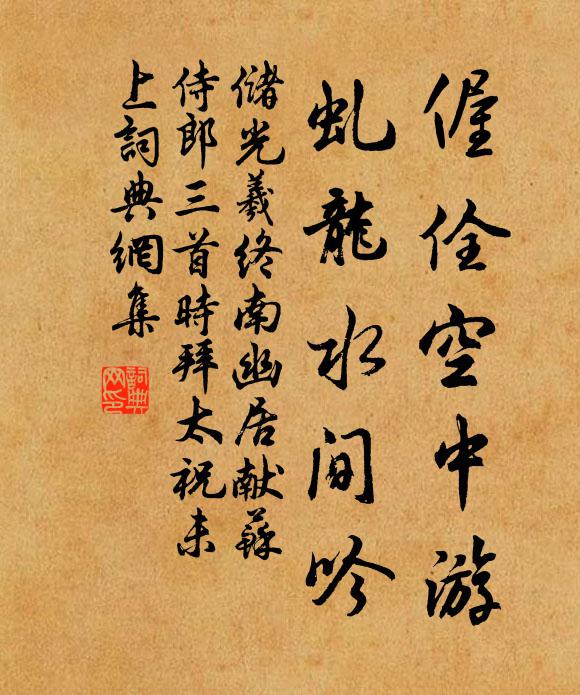 偓佺空中游
虬龍水間吟
儲光羲終南幽居献蘇
侍郎三首時拜太祝未
上詞典網集
詞典网印